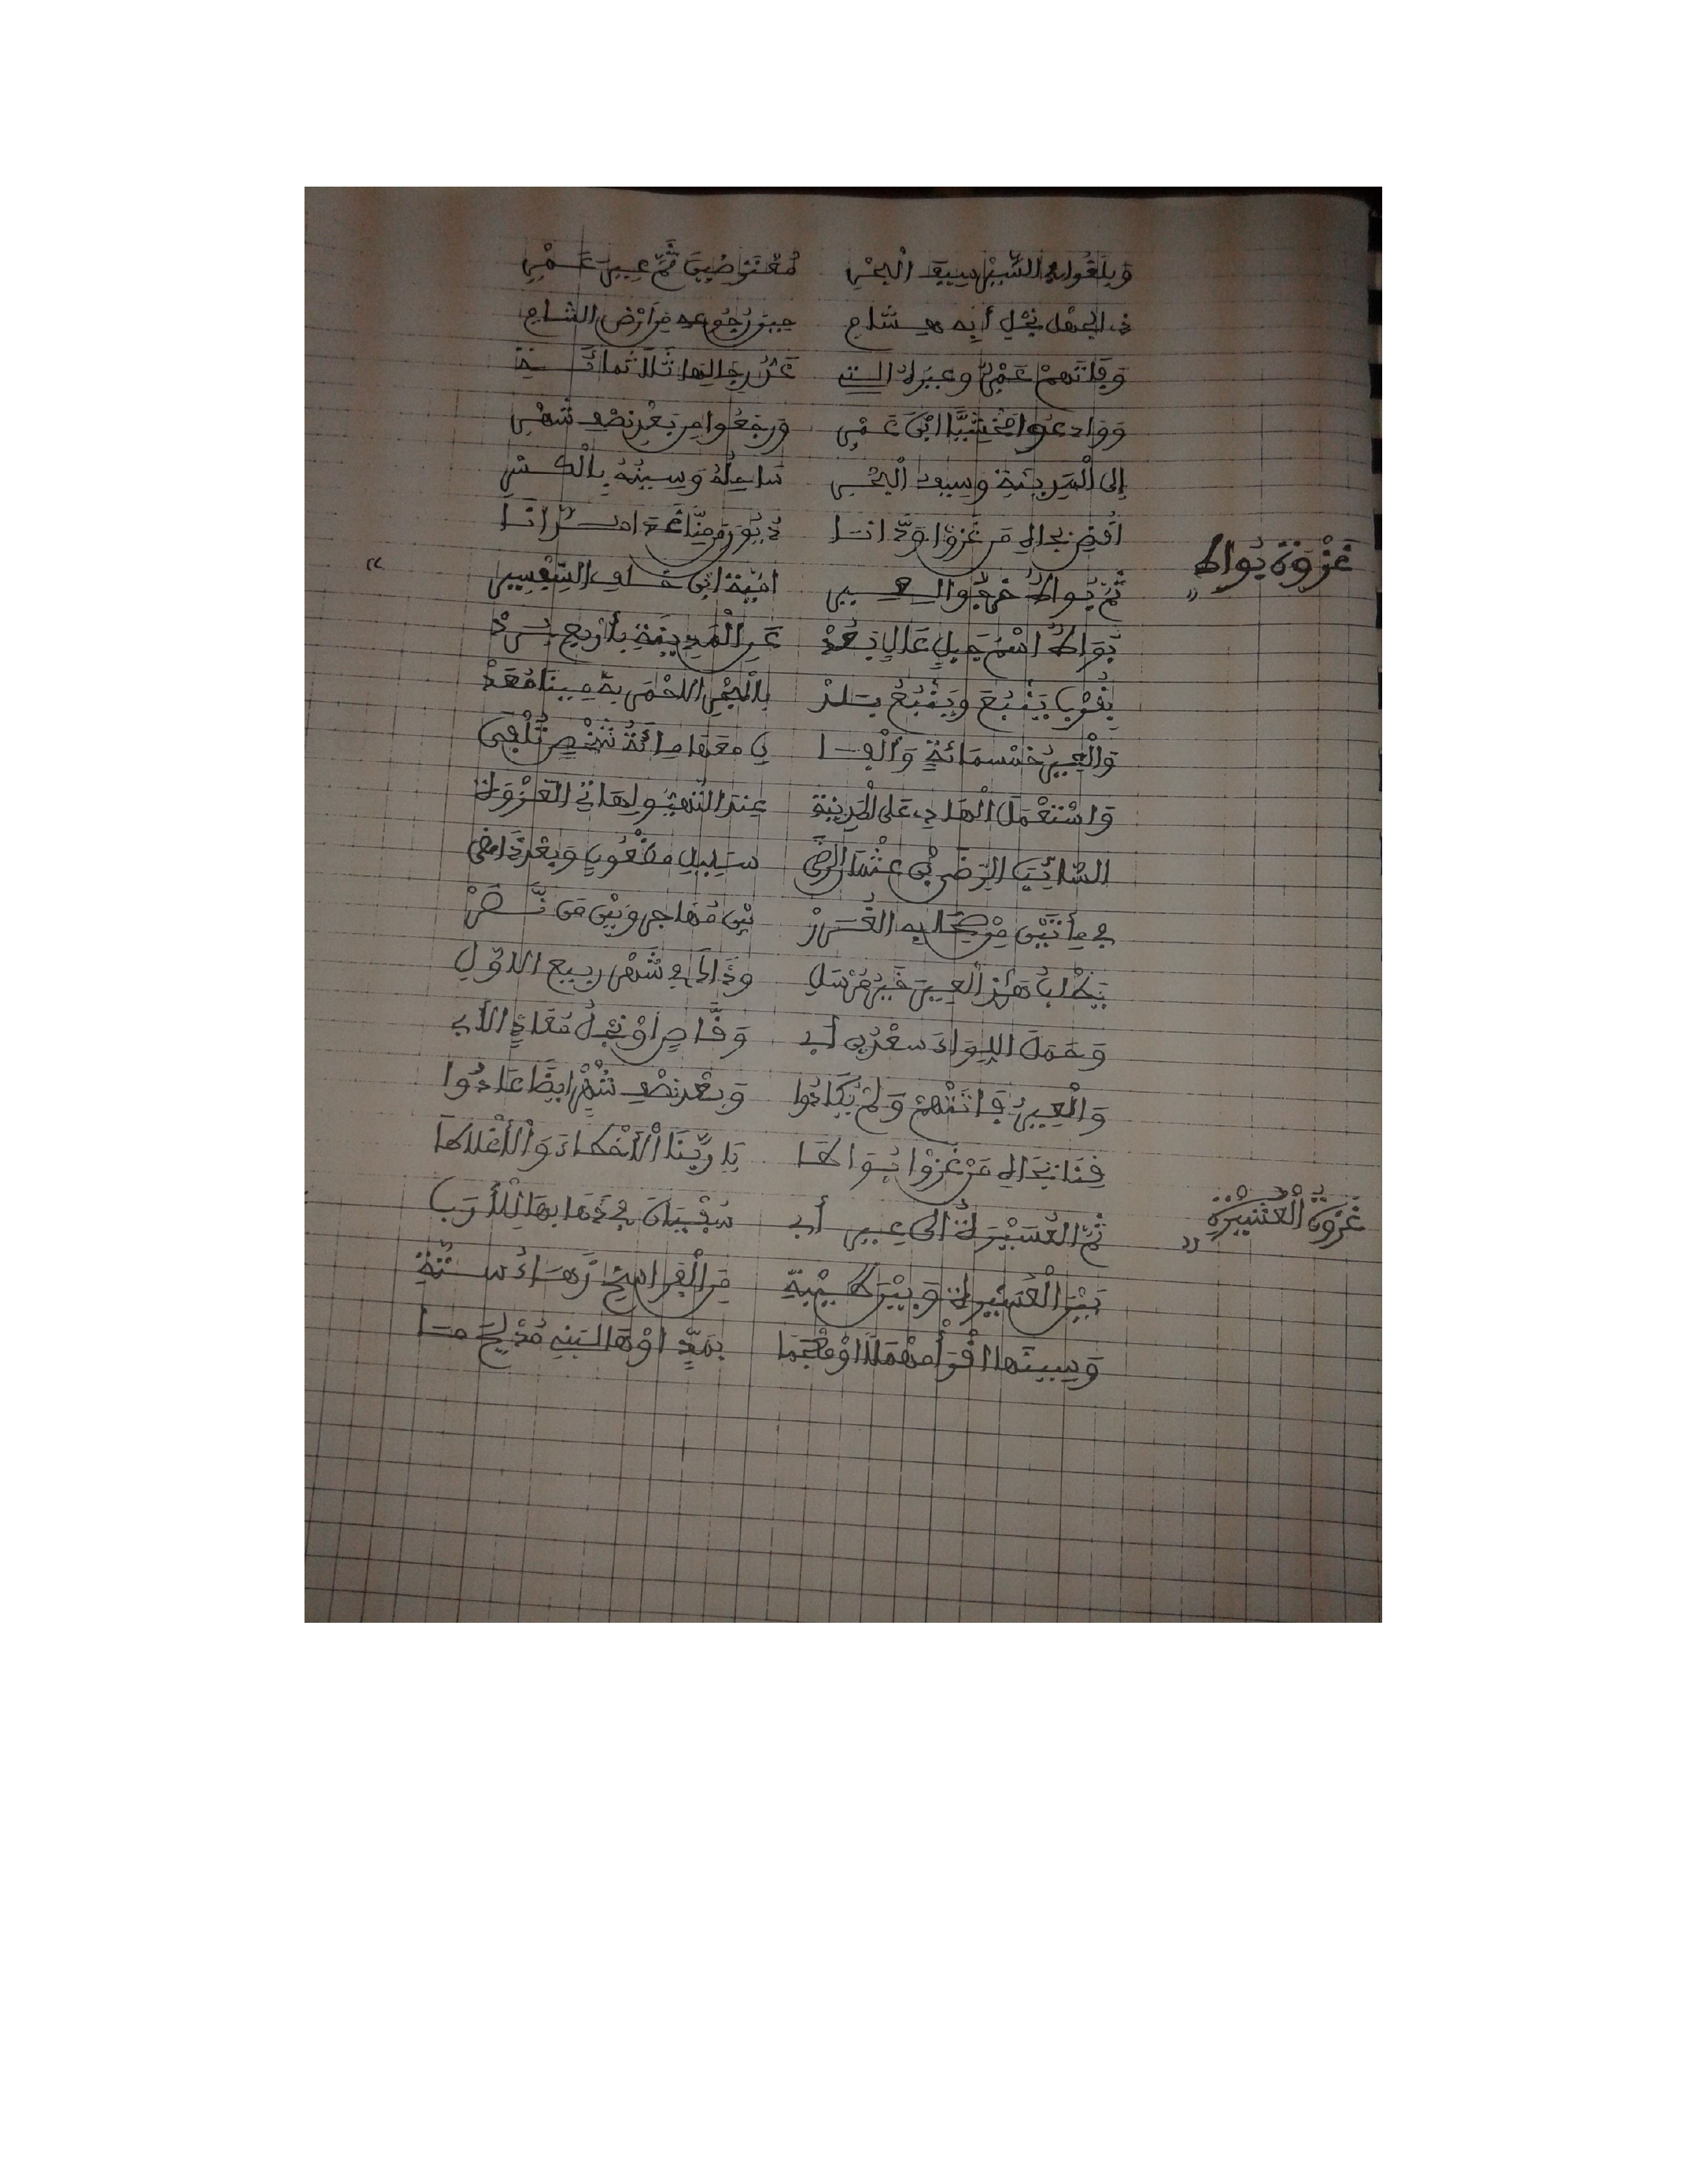 وَبَلَغُوا بِالسَّيْرِ سِيفَ الْبَحْرِ مُعْتَرِضِينَ ثَمَّ عِيرَ عَمْرِ
ذي الجهل نجل أبه هشام حين رجوعه من ارْض الشام
وَفَاتَهمْ عَمْرٌو وعير الست عَدُّ رجالها ثَلَاثُمائَة
وَوَادعُوا مَخْشِيًّا ابْنَ عَمْرِ وَرجَعُوا من بَعْدِ نصْف شَهْرِ
إلى الْمَدينَةِ وسيف الْبَحْرِ سَاحِلُهُ وَسِينُهُ بِالْكسْرِ
اقْضِ بجاه مَن غَزَوْا وَدَّانَا دُيُونَ مِنَّا عَدَ
غَزْوَة بُواط
ثُمَّ بُوَاطُ خَرَجُوا لعيرِ امَيَّة ابْن خلف
بُوَاطُ اسْمُ جَبَلٍ عَالٍ بَعُدْ عَنِ الْمَدِينَةِ بأربع بُرُدْ
بِقُرْبِ يَنْبُعَ وَيَنْبُعُ بلدْ بالْبَحْرِ الاحْمَر به مِينَا مُعَدْ
وَالْعِيرُ خَمْسمَائَةٍ وَألْفا في معَهَا مائَةُ شَخْصٍ تُلْفَى
وَاسْتَعْمَلَ الْهَادِي عَلى الْمَدينَةِ عند النهوض لهاتي الغَزْوَةِ
السَّائِبَ الرِّضَى بْنَ عثْمَان الرضَى سليل مظْعُونٍ وَبَعْدَ ذَا مضَى
في مِأتَيْنِ مِنْ صحابه الْغُرَرْ بَيْنَ مُهَاجِرٍ وَبَيْنَ مَن نَّصَرْ
يَطْلُبُ هَذِي الْعِيرَ خَيْرُ مُرْسَلِ وَذَاكَ في شَهْرِ ربيع الاوَّلِ
وَحَمَلَ اللِّوَاءَ سعْدُ بن أبي وَقَّاصٍ اوْ نجلُ مُعَاذٍ الأبي
وَالْعِيرُ فَاتَتْهمْ وَلمْ يُكَادُوا وَبعْد نصْف شَهْرٍ ايضًا عَادُوا
قِنَا بجَاه مَنْ غَزَوْا بُوَاطَا يَا ربَّنَا الْأخْطاءَ وَالْأغْلَاطَا
غَزْوَةُ الْعُشَيْرَة
ثُمَّ الْعُشَيْرَةُ إلى عِيرِ أبي سُفْيَانَ في ذَهَابهَا لِلْأرَبِ
بَيْنَ الْعُشَيْرَة وَبَيْنَ طَيْبَة مِنَ الْفَراسِخِ زُهَاءُ ستَّةِ
وَسينهَا اقْرَأْ مُهْمَلًا اوْ مُعْجَمَا بمَدٍّ اوْ هَا لبَنِي مُدْلِجَ مَا